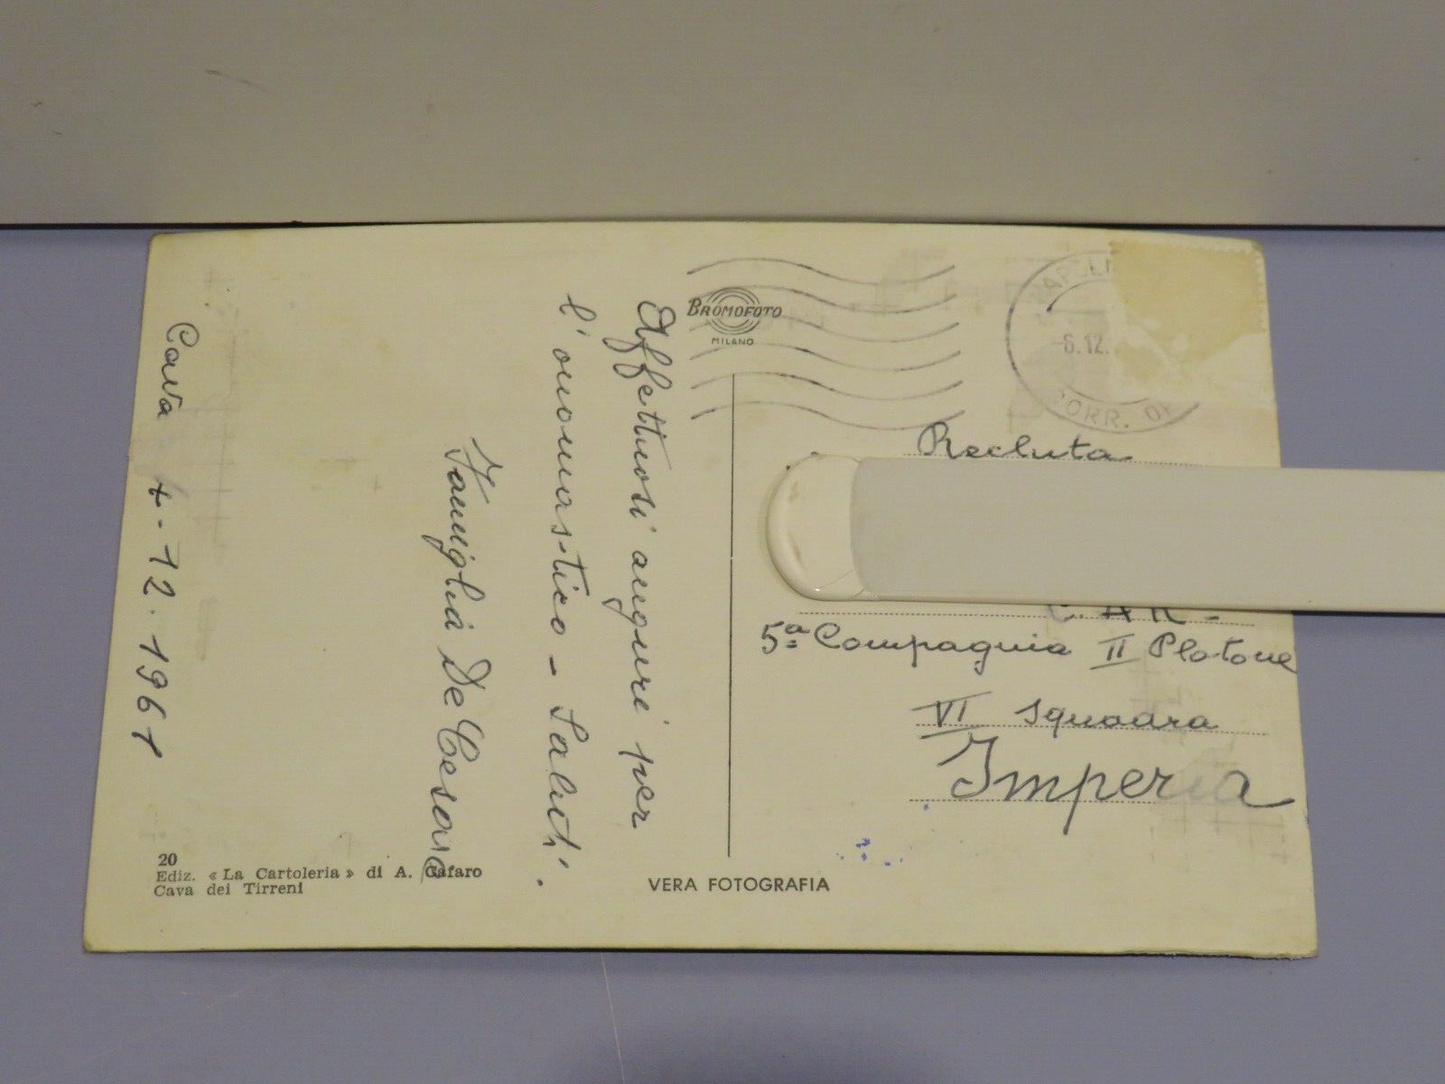 Cava 4-12.1961
Affettuosi auguri per
l'onomastico - Saluti.
Famiglia De Cesare
20
Ediz. «La Cartoleria» di A. Cafaro
Cava dei Tirreni
BROMOFOTO
MILANO
VERA FOTOGRAFIA
NAPOLI
-6.12.
CORR.
Recluta
C.A.R-
5ª Compagnia II Plotone
VI Squadra
Imperia